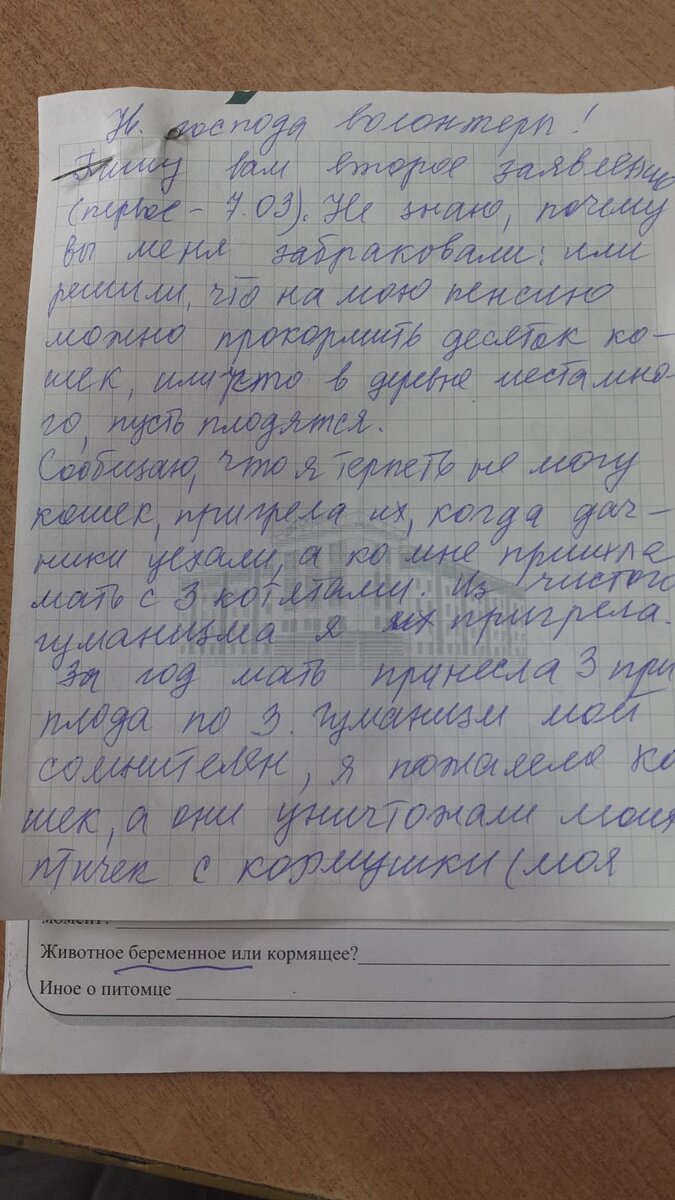 Ув. господа волонтеры!
Пишу вам второе заявление
(первое - 7.03). Не знаю, почему
вы меня забраковали: или
решили, что на мою пенсию
можно прокормить десяток ко-
шек, или что в деревне места мно-
го, пусть плодятся.
Сообщаю, что я терпеть не могу
кошек, пригрела их, когда дач-
ники уехали, а ко мне пришла
мать с 3 котятами. Из чистого
гуманизма я их пригрела.
За год мать принесла 3 при
плода по 3. Гуманизм мой
сомнителен, я пожалела ко
шек, а они уничтожали моих
птичек с кормушки (моя
момент?
Животное беременное или кормящее?
Иное о питомце